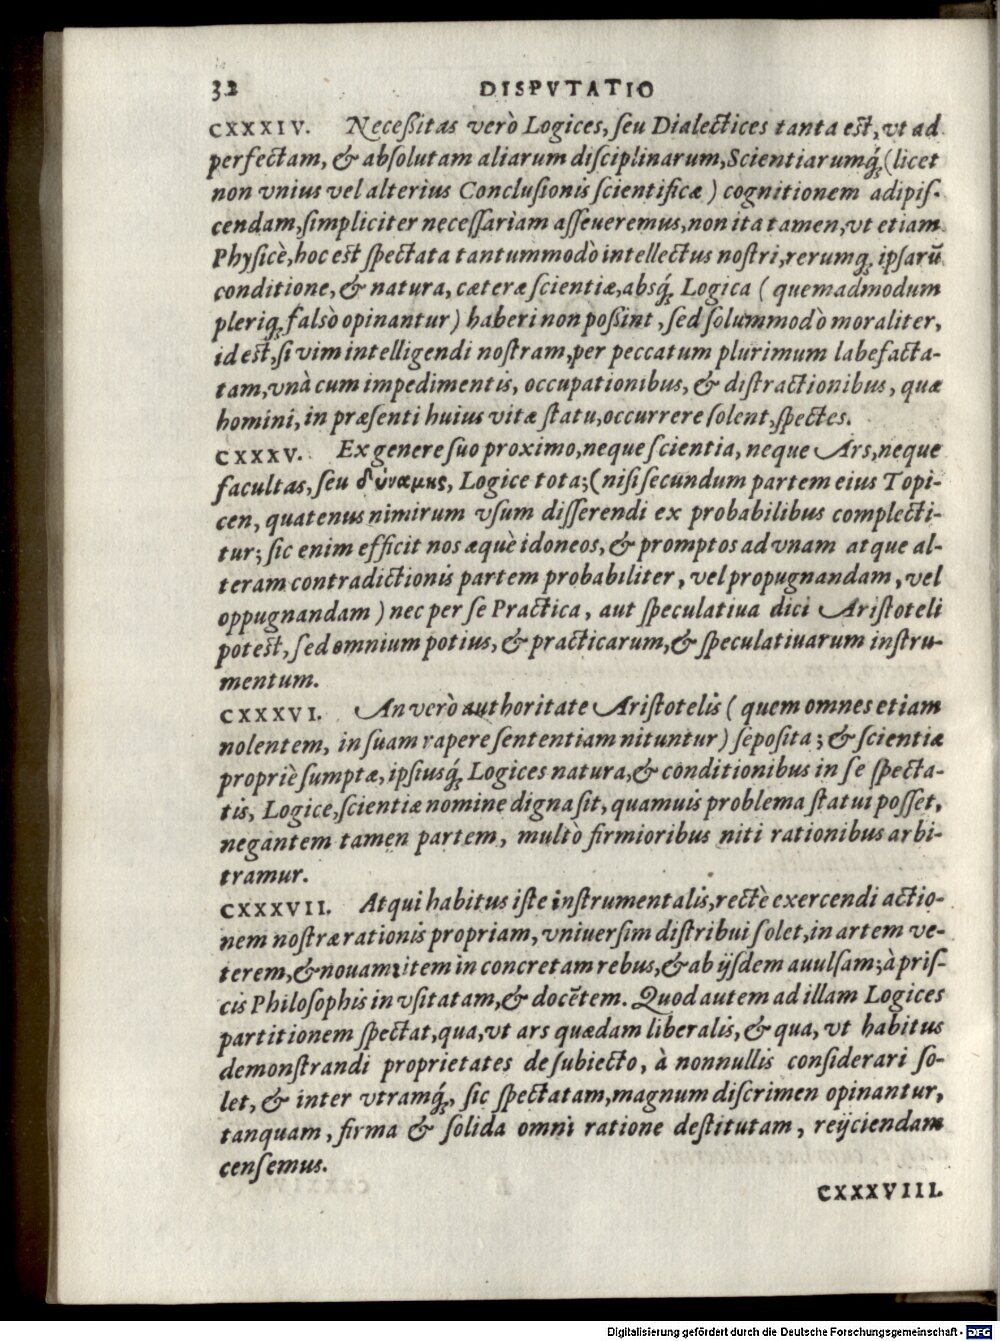 32 DISPVTATIO
CXXXIV. Neceßitas verò Logices, ſeu Dialectices tanta eſt, vt ad
perfectam, & abſolutam aliarum diſciplinarum, Scientiarumq́; (licet
non vnius vel alterius Concluſionis ſcientificæ) cognitionem adipiſ-
cendam, ſimpliciter neceſſariam aſſeueremus, non ita tamen, vt etiam
Phyſicè, hoc eſt ſpectata tantummodò intellectus noſtri, rerumq; ipſarũ
conditione, & natura, cæteræ ſcientiæ, absq́; Logica (quemadmodum
pleriq; falsò opinantur) haberi non poßint, ſed ſolummodò moraliter,
id eſt, ſi vim intelligendi noſtram, per peccatum plurimum labefacta-
tam, vnà cum impedimentis, occupationibus, & diſtractionibus, quæ
homini, in præſenti huius vitæ ſtatu, occurrere ſolent, ſpectes.
CXXXV. Ex genere ſuo proximo, neque ſcientia, neque Ars, neque
facultas, ſeu δύναμις, Logice tota; (niſi ſecundum partem eius Topi-
cen, quatenus nimirum vſum diſſerendi ex probabilibus complecti-
tur; ſic enim efficit nos æquè idoneos, & promptos ad vnam atque al-
teram contradictionis partem probabiliter, vel propugnandam, vel
oppugnandam) nec per ſe Practica, aut ſpeculatiua dici Ariſtoteli
poteſt, ſed omnium potius, & practicarum, & ſpeculatiuarum inſtru-
mentum.
CXXXVI. An verò authoritate Ariſtotelis (quem omnes etiam
nolentem, in ſuam rapere ſententiam nituntur) ſepoſita; & ſcientiæ
propriè ſumptæ, ipſiusq́; Logices natura, & conditionibus in ſe ſpecta-
tis, Logice, ſcientiæ nomine digna ſit, quamuis problema ſtatui poſſet,
negantem tamen partem, multò firmioribus niti rationibus arbi-
tramur.
CXXXVII. Atqui habitus iſte inſtrumentalis, rectè exercendi actio-
nem noſtræ rationis propriam, vniuerſim diſtribui ſolet, in artem ve-
terem, & nouam: item in concretam rebus, & ab ijſdem auulſam; à priſ-
cis Philoſophis inuſitatam, & docẽtem. Quod autem ad illam Logices
partitionem ſpectat, qua, vt ars quædam liberalis, & qua, vt habitus
demonſtrandi proprietates de ſubiecto, à nonnullis conſiderari ſo-
let, & inter vtramq́;, ſic ſpectatam, magnum diſcrimen opinantur,
tanquam, firma & ſolida omni ratione deſtitutam, reijciendam
cenſemus.
CXXXVIII.
Digitalisierung gefördert durch die Deutsche Forschungsgemeinschaft - DFG